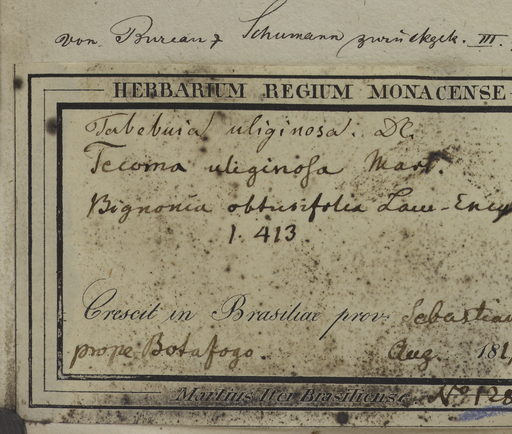 von Bureau & Schumann zurückgek. III.
HERBARIUM REGIUM MONACENSE
Tabebuia uliginosa. DC.
Tecoma uliginosa Mart.
Bignonia obtusifolia Lam-Ency
1. 413
Crescit in Brasiliae prov. Sebastian
prope Botafogo. Aug. 181
Martius Iter Brasiliense No 128